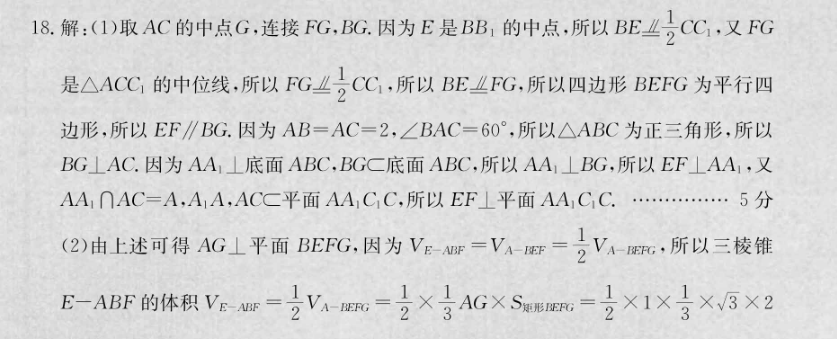 18. 解:(1)取 AC 的中点G,连接 FG,BG. 因为 E 是BB₁ 的中点,所以 BE⫽̲\frac{1}{2}CC₁,又 FG
是△ACC₁ 的中位线,所以 FG⫽̲\frac{1}{2}CC₁,所以 BE⫽̲FG,所以四边形 BEFG 为平行四
边形,所以 EF∥BG. 因为 AB=AC=2,∠BAC=60°,所以△ABC 为正三角形,所以
BG⊥AC. 因为 AA₁⊥底面 ABC,BG⊂底面 ABC,所以 AA₁⊥BG,所以 EF⊥AA₁,又
AA₁∩AC=A,A₁A,AC⊂平面 AA₁C₁C,所以 EF⊥平面 AA₁C₁C. …………… 5 分
(2)由上述可得 AG⊥平面 BEFG,因为 V_{E-ABF}=V_{A-BEF}=\frac{1}{2}V_{A-BEFG},所以三棱锥
E-ABF 的体积 V_{E-ABF}=\frac{1}{2}V_{A-BEFG}=\frac{1}{2}×\frac{1}{3}AG×S_{矩形BEFG}=\frac{1}{2}×1×\frac{1}{3}×√3×2